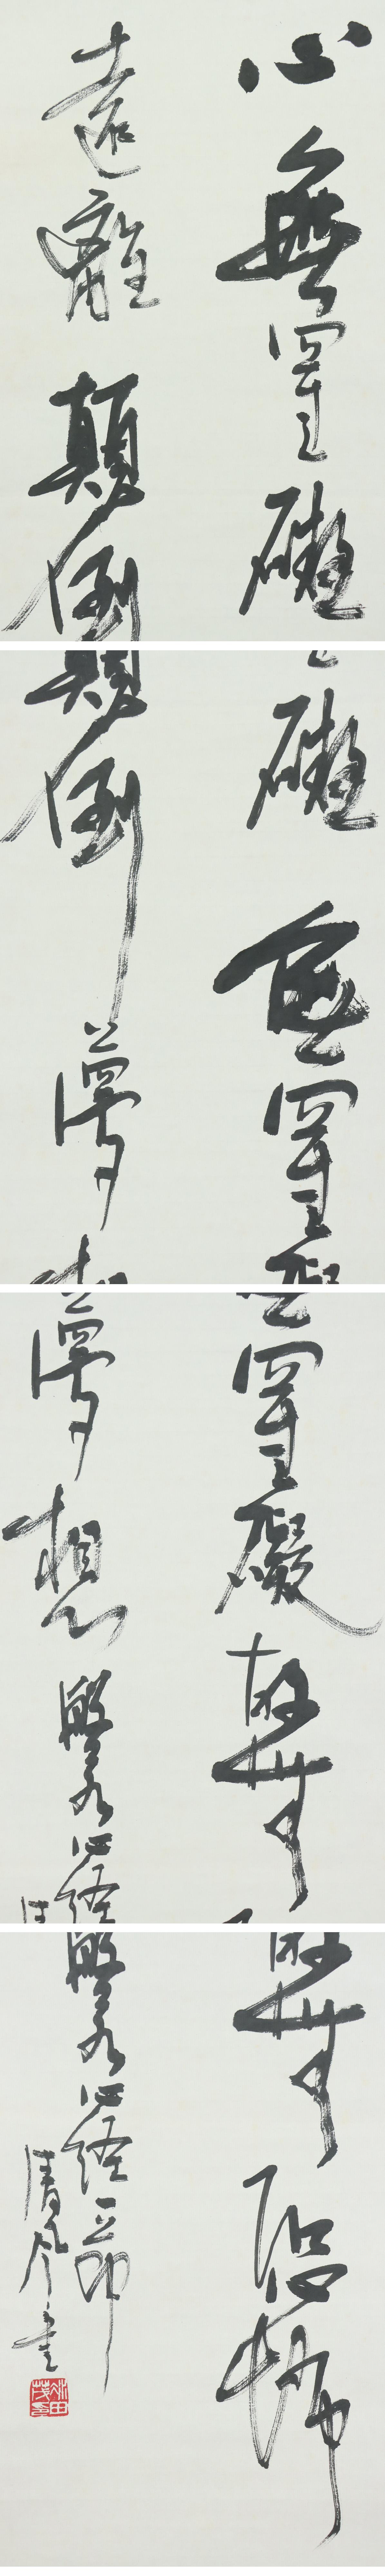 心無罣礙無罣礙故無有恐怖
遠離顛倒夢想
般若心経一節
清風書